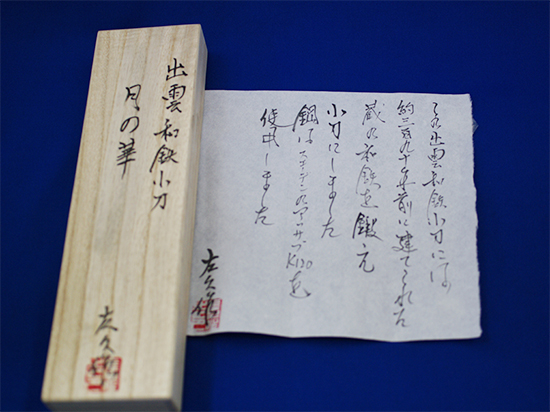 出雲 和鉄小刀
月の華
左久作
この出雲和鉄小刀には
約三百九十年前に建てられた
蔵の和鉄を鍛え
小刀にしました
鋼はスエーデンのアッサブK120を
使用しました
左久作